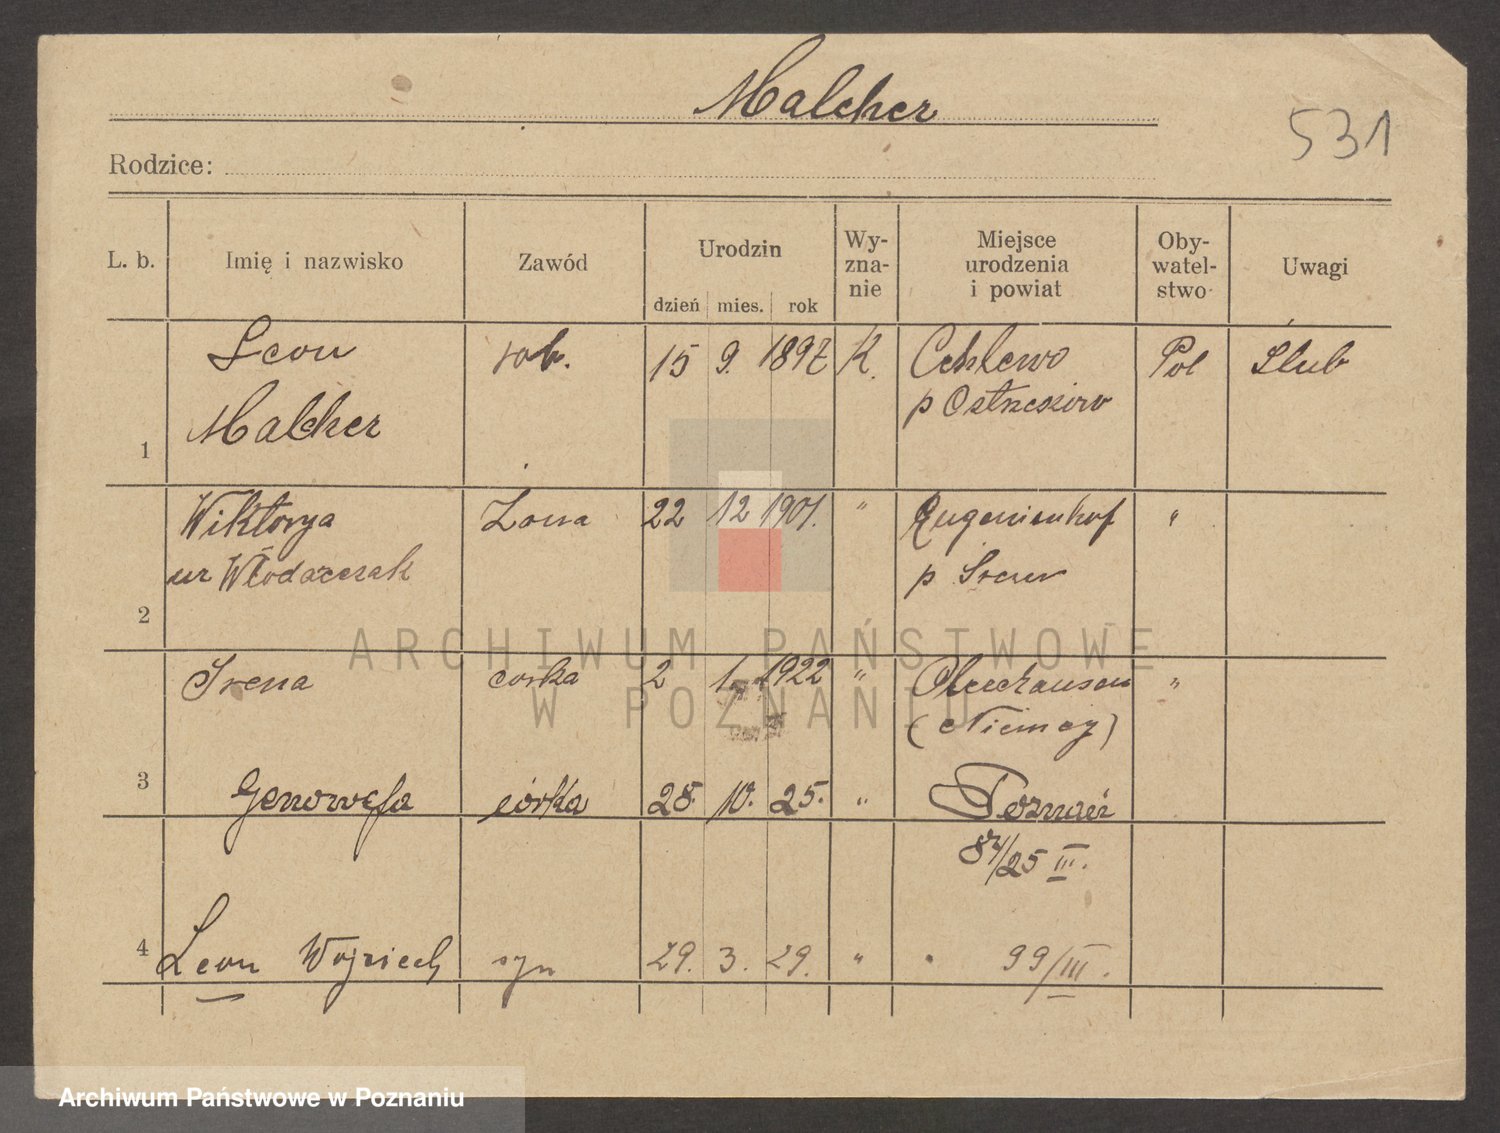 Malcher
531
Rodzice:
L. b. Imię i nazwisko Zawód Urodzin Wy-zna-nie Miejsce urodzenia i powiat Oby-watel-stwo Uwagi
dzień mies. rok
Leon rob. 15 9. 1897 K. Ślub
Malcher Pol
p Ostrzeszów
1
Wiktorya Żona 22 12 1901. " Eugenienhof "
ur Włodarczak p Śrem
2
Irena corka 2 1. 1922 " Oberhausen "
(Niemcy)
3
Genowefa córka 28. 10. 25. " Poznań
87/25 III.
4 Leon Wojciech syn 29. 3. 29. " " 99/III.
ARCHIWUM PAŃSTWOWE
W POZNANIU
Archiwum Państwowe w Poznaniu